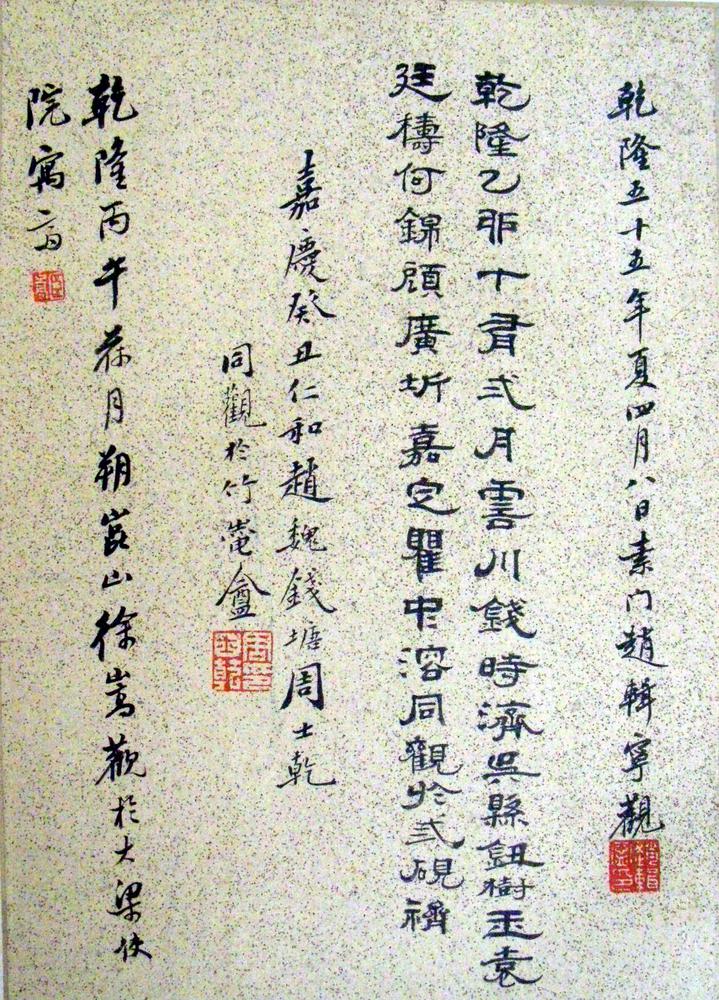 乾隆五十五年夏四月八日素门趙輯寧觀
乾隆乙卯十有弍月雲川錢時濟吳縣鈕樹玉袁
廷檮何錦顧廣圻嘉定瞿中溶同觀於弍硯齋
嘉慶癸丑仁和趙魏錢塘周士乾
同觀於竹崦盦
乾隆丙午荷月朔崑山徐嵩觀於大梁使
院寓斋